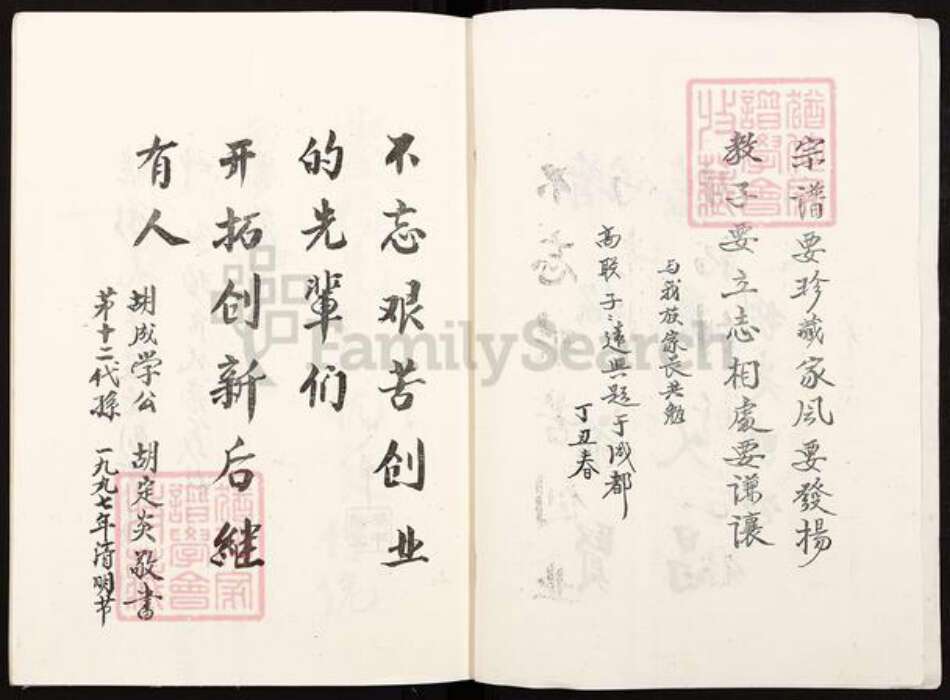 宗谱要珍藏家风要發揚
教子要立志相處要謙讓
与我族家长共勉
高联子
题于成都
丁丑春
不忘艰苦创业
的先輩们
开拓创新后继
有人
胡成学公 胡定炎敬書
苐十二代孫 一九九七年清明节
譜學會
收藏
FamilySearch